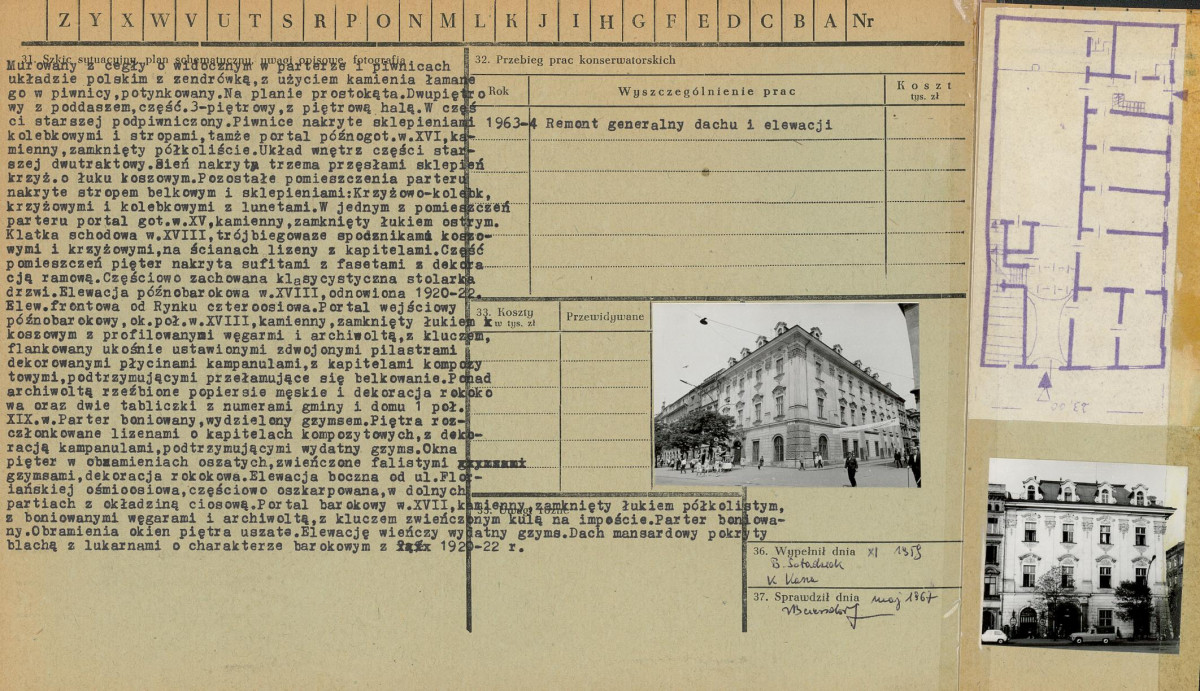 Z Y X W V U T S R P O N M L K J I H G F E D C B A Nr
31. Szkic sytuacyjny, plan schematyczny, uwagi opisowe, fotografia
Murowany z cegły o widocznym w parterze i piwnicach
układzie polskim z zendrówką,z użyciem kamienia łamane
go w piwnicy,potynkowany.Na planie prostokąta.Dwupiętro
wy z poddaszem,część.3-piętrowy,z piętrową halą.W częś
ci starszej podpiwniczony.Piwnice nakryte sklepieniami
kolebkowymi i stropami,tamże portal późnogot.w.XVI,ka-
mienny,zamknięty półkoliście.Układ wnętrz części star-
szej dwutraktowy.Sień nakryta trzema przęsłami sklepień
krzyż.o łuku koszowym.Pozostałe pomieszczenia parteru
nakryte stropem belkowym i sklepieniami:Krzyżowo-kolebk,
krzyżowymi i kolebkowymi z lunetami.W jednym z pomieszczeń
parteru portal got.w.XV,kamienny,zamknięty łukiem ostrym.
Klatka schodowa w.XVIII,trójbiegowaze spodznikami koszo-
wymi i krzyżowymi,na ścianach lizeny z kapitelami.Część
pomieszczeń pięter nakryta sufitami z fasetami z dekora
cją ramową.Częściowo zachowana klasycystyczna stolarka
drzwi.Elewacja późnobarokowa w.XVIII,odnowiona 1920-22.
Elew.frontowa od Rynku czteroosiowa.Portal wejściowy
późnobarokowy,ok.poł.w.XVIII,kamienny,zamknięty łukiem k
koszowym z profilowanymi węgarmi i archiwoltą,z kluczem,
flankowany ukośnie ustawionymi zdwojonymi pilastrami
dekorowanymi płycinami kampanulami,z kapitelami kompozy
towymi,podtrzymującymi przełamujące się belkowanie.Ponad
archiwoltą rzeźbione popiersie męskie i dekoracja rokoko
wa oraz dwie tabliczki z numerami gminy i domu 1 poł.
XIX.w.Parter boniowany,wydzielony gzymsem.Piętra roz-
członkowane lizenami o kapitelach kompozytowych,z deko-
racją kampanulami,podtrzymującymi wydatny gzyms.Okna
pięter w obzamieniach oszatych,zwieńczone falistymi
gzymsami,dekoracja rokokowa.Elewacja boczna od ul.Flor-
iańskiej ośmioosiowa,częściowo oszkarpowana,w dolnych
partiach z okładziną ciosową.Portal barokowy w.XVII,kamienny,zamknięty łukiem półkolistym,
z boniowanymi węgarami i archiwoltą,z kluczem zwieńczonym kulą na impoście.Parter boniowa-
ny.Obramienia okien piętra uszate.Elewację wieńczy wydatny gzyms.Dach mansardowy pokryty
blachą z lukarnami o charakterze barokowym z 1920-22 r.
32. Przebieg prac konserwatorskich
Rok Wyszczególnienie prac Koszt tys. zł
1963-4 Remont generalny dachu i elewacji
33. Koszty w tys. zł Przewidywane
35. Uwagi różne
36. Wypełnił dnia XI 1959
37. Sprawdził dnia maj 1967
23,00